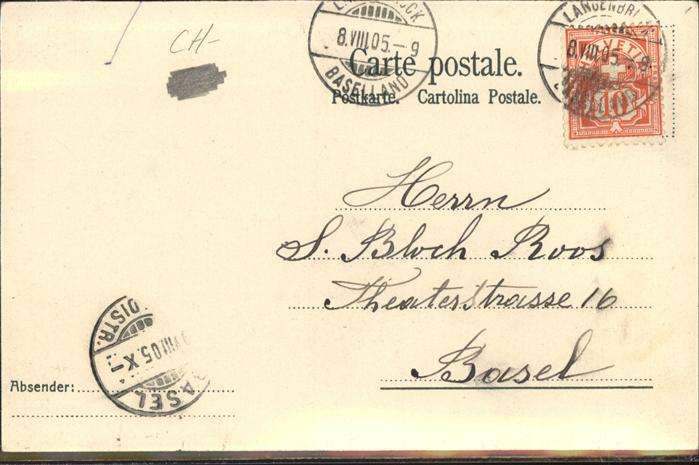 CH-
8.VIII.05.-9
BASELLAND
LANGENBR
8.VIII.05
HELVETIA
10
Carte postale.
Postkarte. Cartolina Postale.
Herrn
S. Bloch Roos
Theaterstrasse 16
Basel
DISTR.
VIII.05.X-
BASEL
Absender: